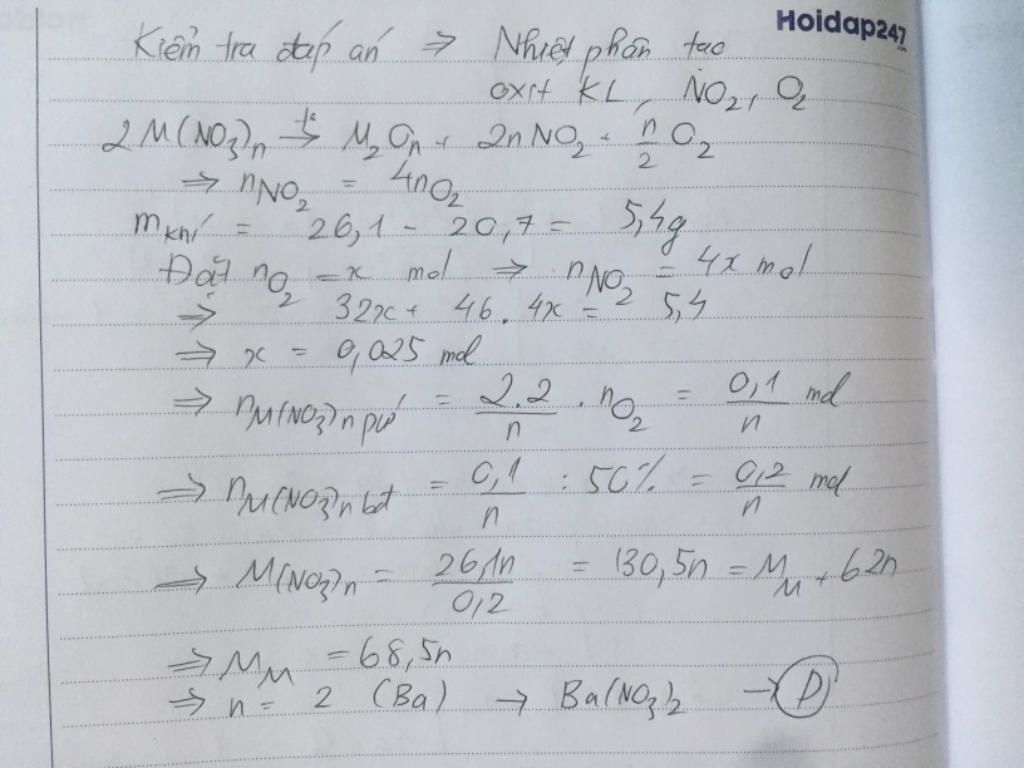 Hoidap247
Kiểm tra đáp án ⇒ Nhiệt phân tạo
oxit KL, NO₂, O₂
2M(NO₃)ₙ →(t°) M₂Oₙ + 2nNO₂ + n/2 O₂
⇒ nNO₂ = 4nO₂
mkhí = 26,1 - 20,7 = 5,4g
Đặt nO₂ = x mol ⇒ nNO₂ = 4x mol
⇒ 32x + 46 . 4x = 5,4
⇒ x = 0,025 mol
⇒ nM(NO₃)ₙ pứ = 2.2/n . nO₂ = 0,1/n mol
⇒ nM(NO₃)ₙ bđ = 0,1/n : 50% = 0,2/n mol
⇒ M(NO₃)ₙ = 26,1n/0,2 = 130,5n = M_M + 62n
⇒ M_M = 68,5n
⇒ n = 2 (Ba) → Ba(NO₃)₂ → D